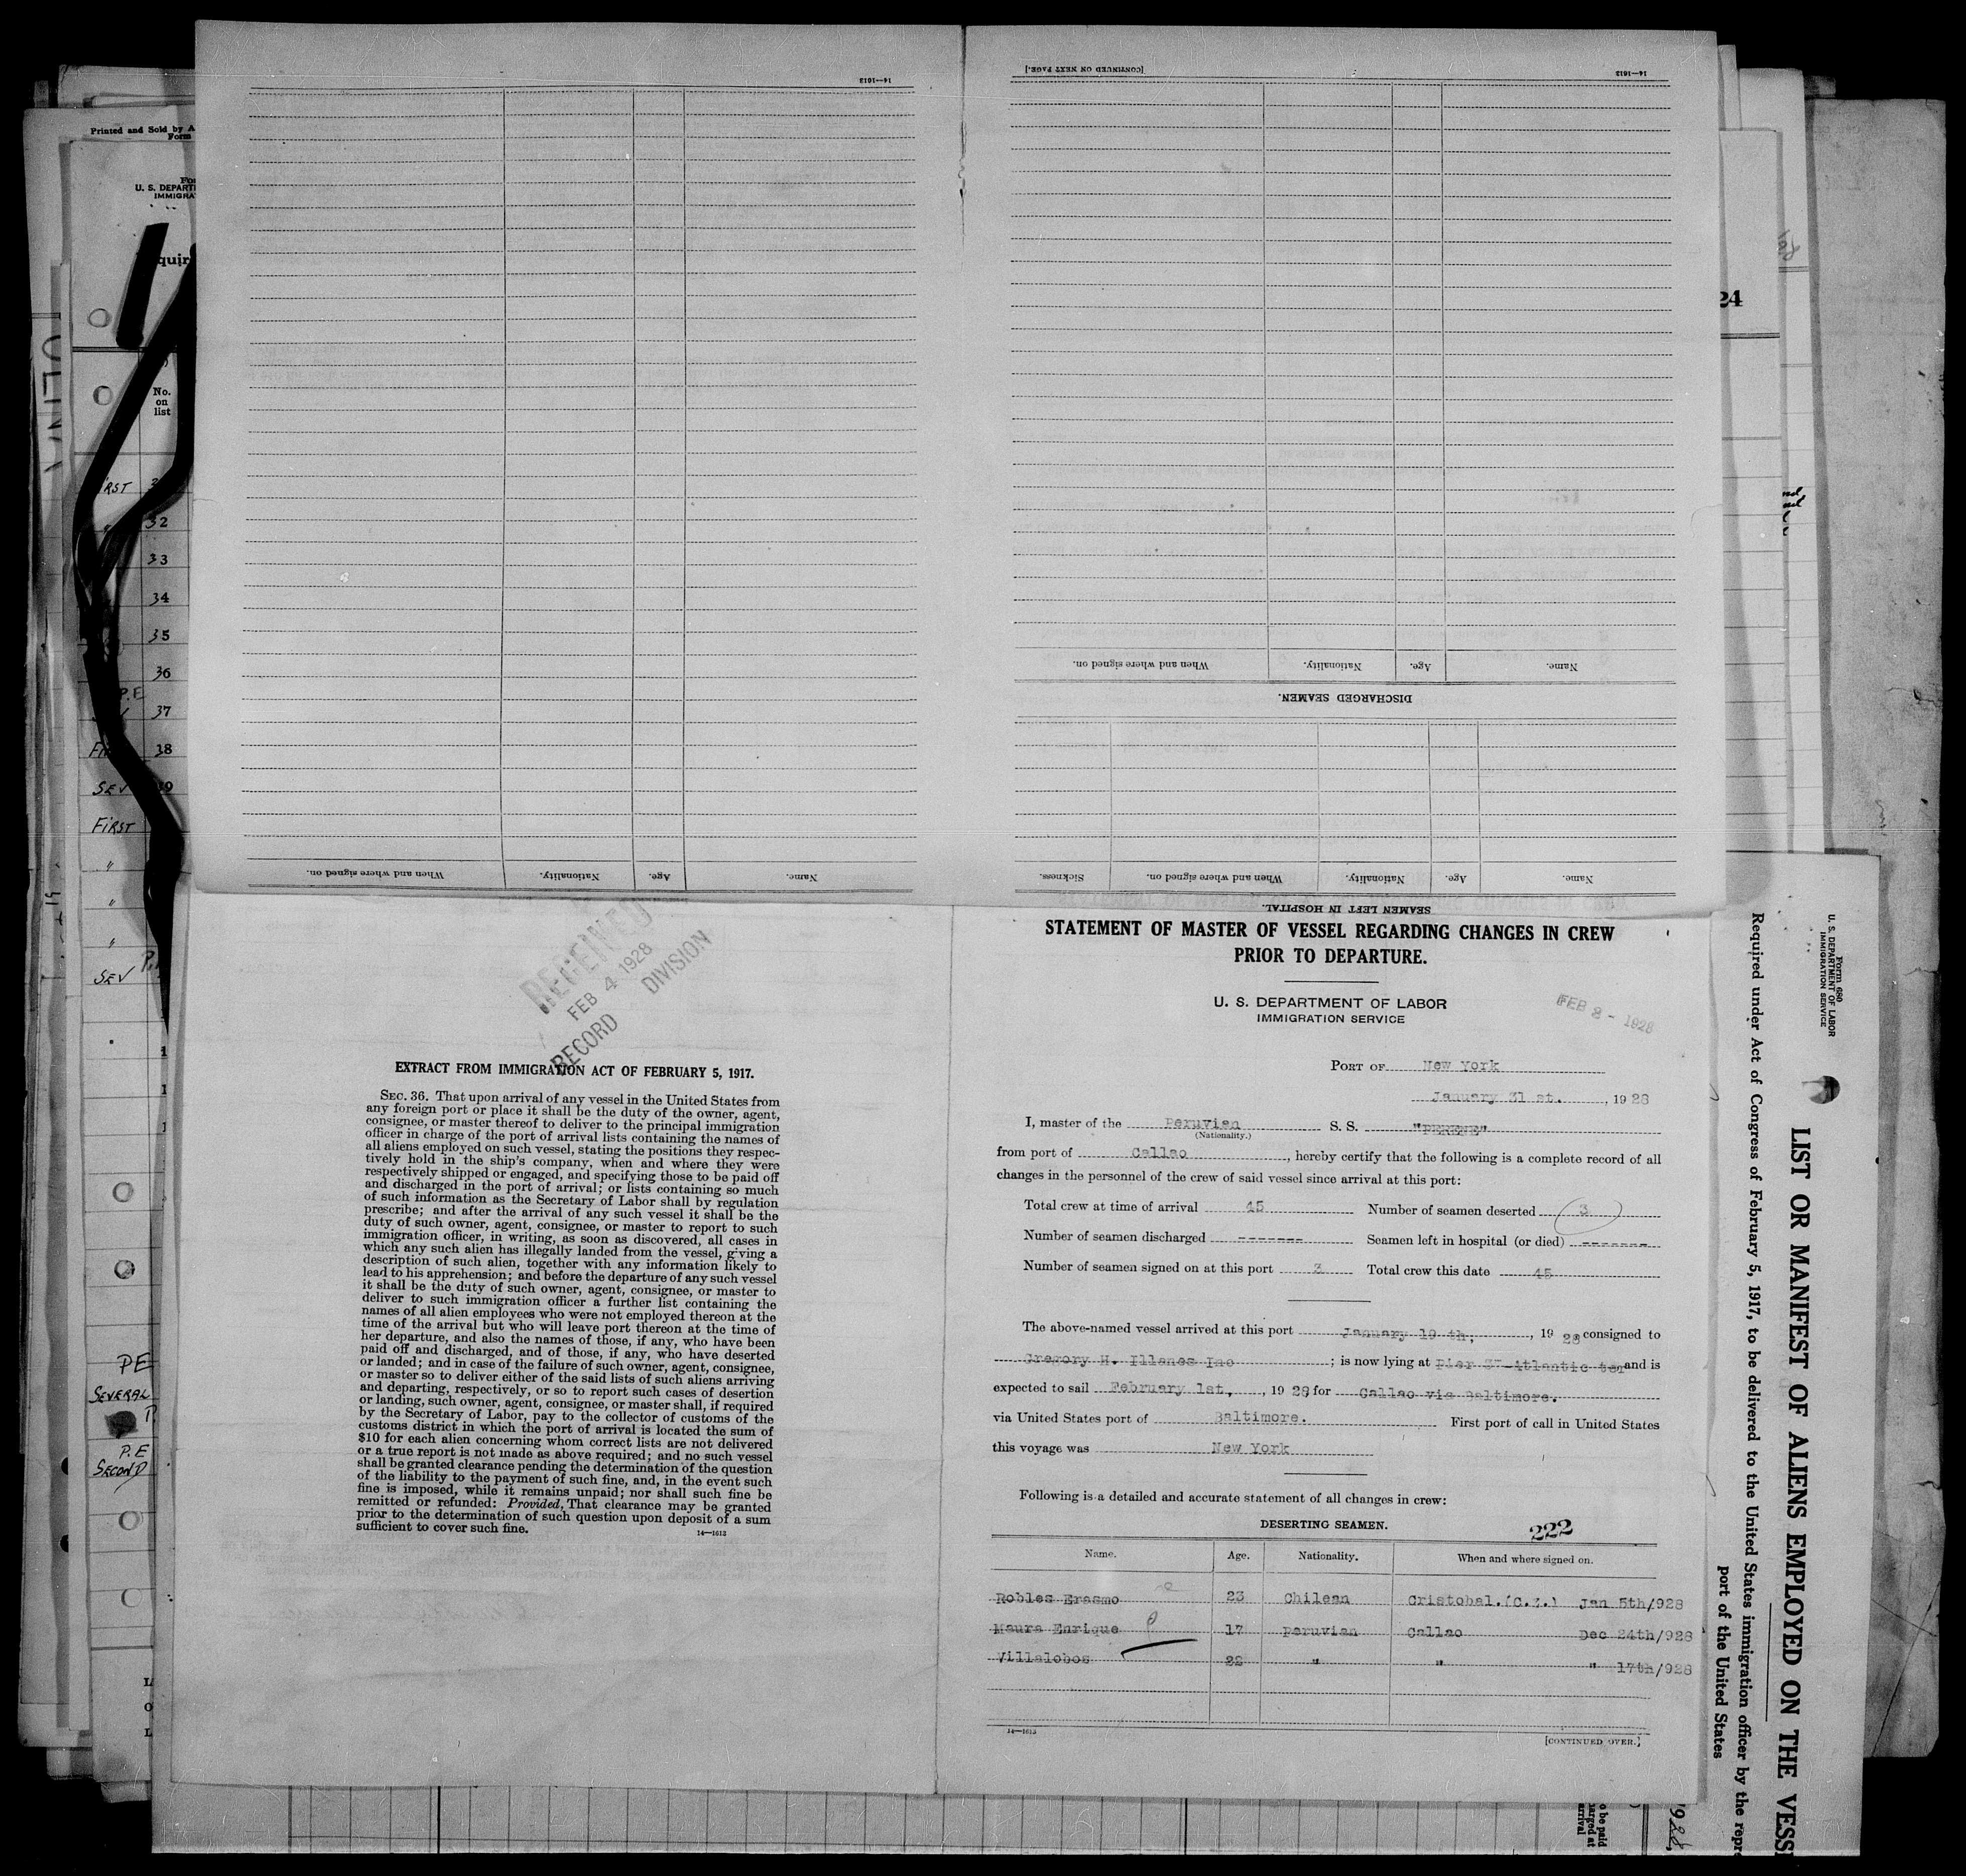 14—1613
[CONTINUED ON NEXT PAGE.]
14—1613
When and where signed on.
Nationality.
Age.
Name.
DISCHARGED SEAMEN.
When and where signed on.
Nationality.
Age.
Name.
Sickness.
When and where signed on.
Nationality.
Age.
Name.
SEAMEN LEFT IN HOSPITAL.
Printed and Sold by
Form
U. S. DEPARTM
IMMIGRA
No.
on
list
RST
32
33
34
35
36
P.E
37
38
SEV
FIRST
"
"
"
SEV
PE
SEVERAL
P.E
SECOND
24
RECEIVED
FEB 4 1928
DIVISION
RECORD
EXTRACT FROM IMMIGRATION ACT OF FEBRUARY 5, 1917.
SEC. 36. That upon arrival of any vessel in the United States from
any foreign port or place it shall be the duty of the owner, agent,
consignee, or master thereof to deliver to the principal immigration
officer in charge of the port of arrival lists containing the names of
all aliens employed on such vessel, stating the positions they respec-
tively hold in the ship's company, when and where they were
respectively shipped or engaged, and specifying those to be paid off
and discharged in the port of arrival; or lists containing so much
of such information as the Secretary of Labor shall by regulation
prescribe; and after the arrival of any such vessel it shall be the
duty of such owner, agent, consignee, or master to report to such
immigration officer, in writing, as soon as discovered, all cases in
which any such alien has illegally landed from the vessel, giving a
description of such alien, together with any information likely to
lead to his apprehension; and before the departure of any such vessel
it shall be the duty of such owner, agent, consignee, or master to
deliver to such immigration officer a further list containing the
names of all alien employees who were not employed thereon at the
time of the arrival but who will leave port thereon at the time of
her departure, and also the names of those, if any, who have been
paid off and discharged, and of those, if any, who have deserted
or landed; and in case of the failure of such owner, agent, consignee,
or master so to deliver either of the said lists of such aliens arriving
and departing, respectively, or so to report such cases of desertion
or landing, such owner, agent, consignee, or master shall, if required
by the Secretary of Labor, pay to the collector of customs of the
customs district in which the port of arrival is located the sum of
$10 for each alien concerning whom correct lists are not delivered
or a true report is not made as above required; and no such vessel
shall be granted clearance pending the determination of the question
of the liability to the payment of such fine, and, in the event such
fine is imposed, while it remains unpaid; nor shall such fine be
remitted or refunded: Provided, That clearance may be granted
prior to the determination of such question upon deposit of a sum
sufficient to cover such fine.
14—1613
STATEMENT OF MASTER OF VESSEL REGARDING CHANGES IN CREW
PRIOR TO DEPARTURE.
U. S. DEPARTMENT OF LABOR
IMMIGRATION SERVICE
FEB 8 - 1928
PORT OF New York
January 31 st. , 1928
I, master of the Peruvian S. S. "PERENE"
(Nationality.)
from port of Callao , hereby certify that the following is a complete record of all
changes in the personnel of the crew of said vessel since arrival at this port:
Total crew at time of arrival 45 Number of seamen deserted 3
Number of seamen discharged ------- Seamen left in hospital (or died) -------
Number of seamen signed on at this port 3 Total crew this date 45
The above-named vessel arrived at this port January 19 th, , 19 28 consigned to
Gregory H. Illanes Inc ; is now lying at Pier 37-Atlantic ter and is
expected to sail February 1st, , 19 28 for Callao via Baltimore.
via United States port of Baltimore. First port of call in United States
this voyage was New York
Following is a detailed and accurate statement of all changes in crew:
DESERTING SEAMEN.
222
Name. Age. Nationality. When and where signed on.
Robles Erasmo 23 Chilean Cristobal.(C.Z.) Jan 5th/928
Maura Enrique 17 Peruvian Callao Dec 24th/928
Villalobos 22 " " " 17th/928
14—1613
[CONTINUED OVER.]
Form 680
U. S. DEPARTMENT OF LABOR
IMMIGRATION SERVICE
LIST OR MANIFEST OF ALIENS EMPLOYED ON THE VESS
Required under Act of Congress of February 5, 1917, to be delivered to the United States immigration officer by the repre
port of the United States
o be paid
harged at
arrival